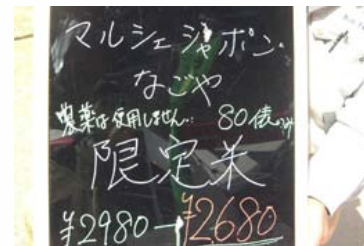 マルシェジャポン
なごや
農薬は使用しません 80俵のみ
限定米
¥2980→¥2680